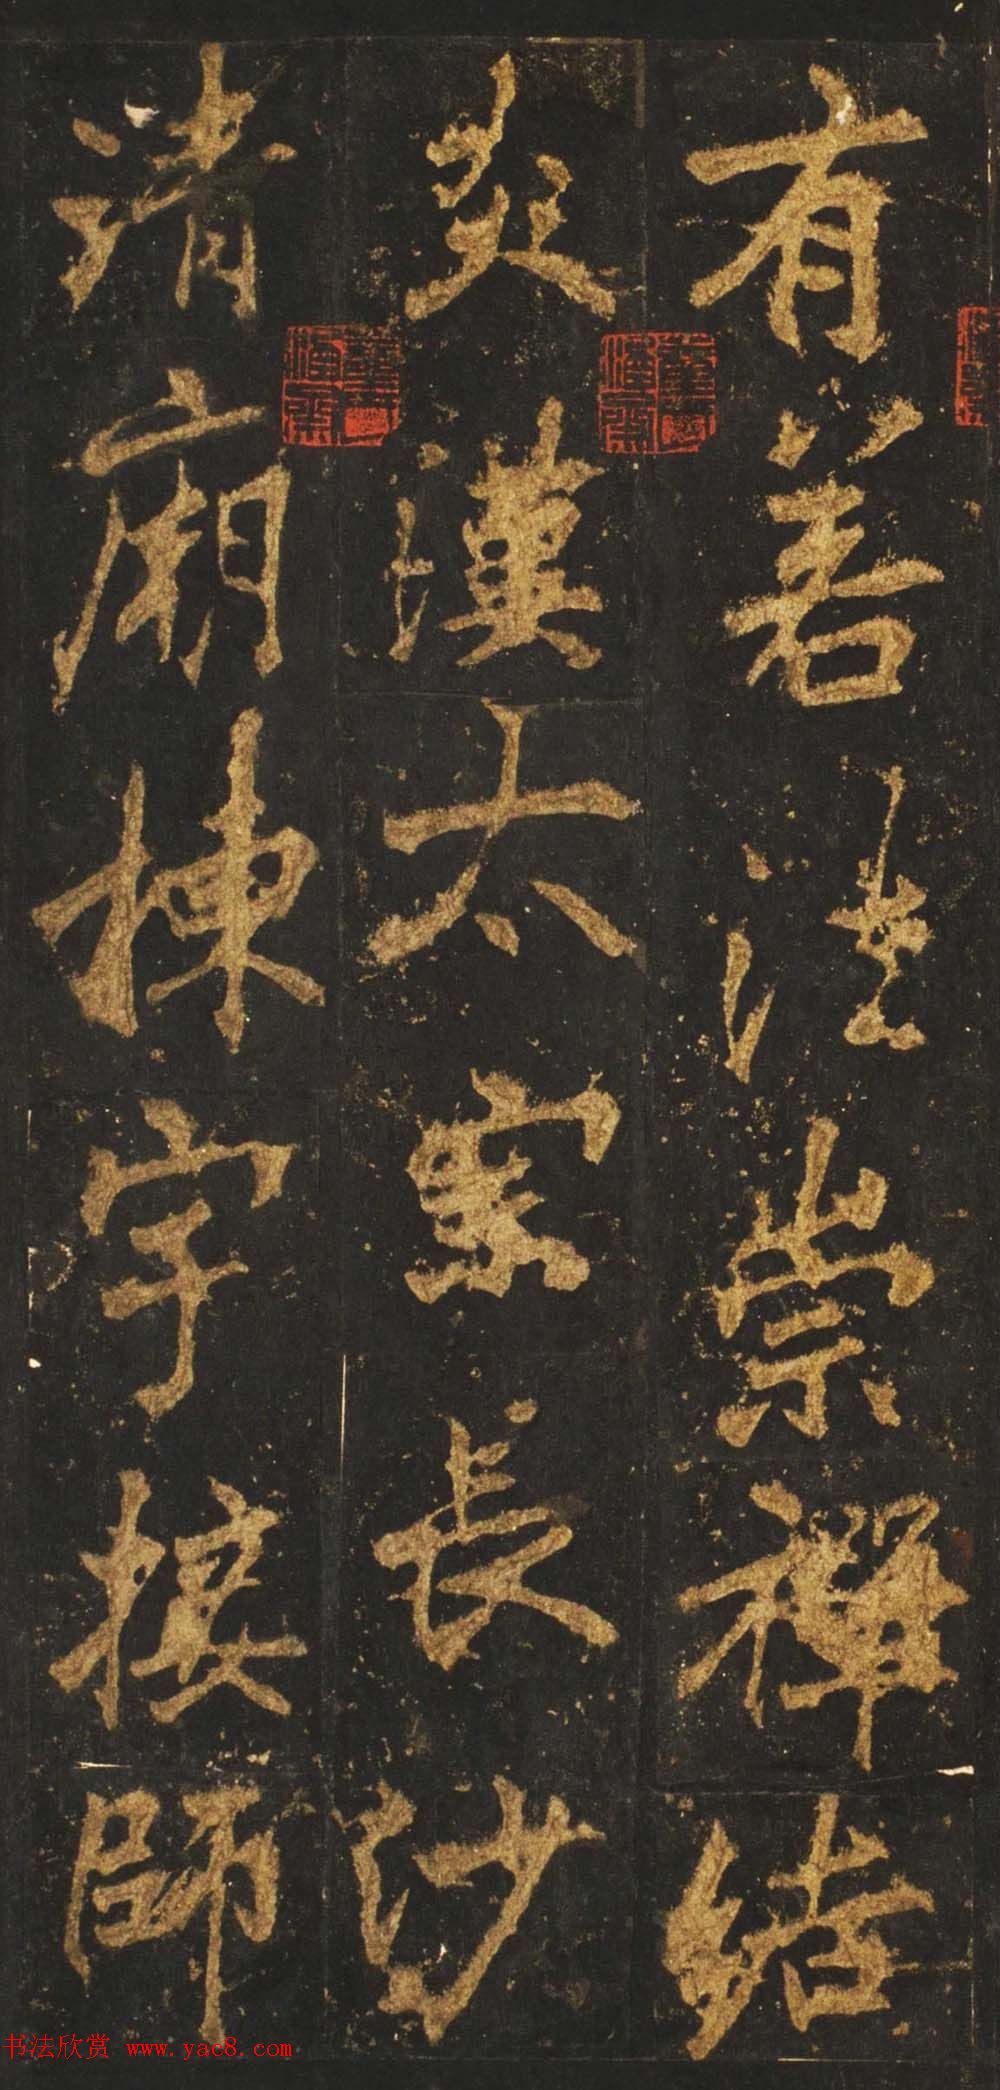 有若法崇禪結
炎漢太宗長沙
清廟棟宇接師
书法欣赏 www.yac8.com